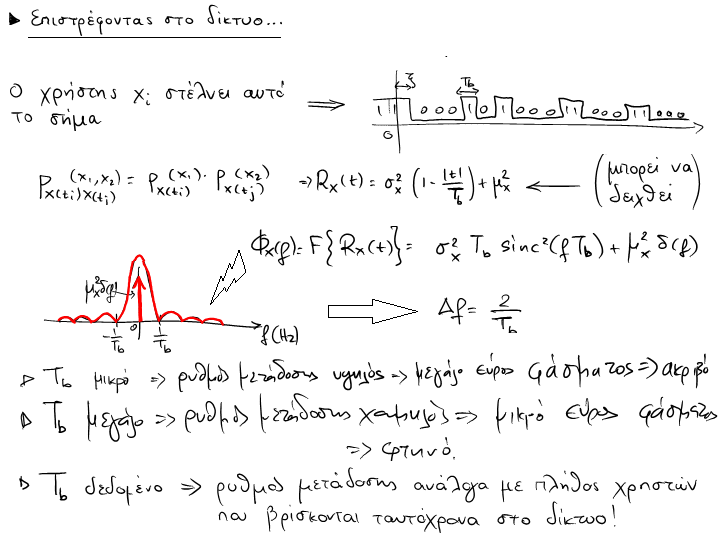 ▶ Επιστρέφοντας στο δίκτυο...
Ο χρήστης χᵢ στέλνει αυτό ⟹
το σήμα
ξ T_b
1 1 0 0 0 1 0 1 0 0 0 1 1 0 0 0 1 1 0 0 0
0
P_{x(t_i)x(t_j)}(x₁,x₂) = P_{x(t_i)}(x₁) · P_{x(t_j)}(x₂) ⇒ R_x(t) = σ_x² (1 - |t|/T_b) + μ_x² ⟵ (μπορεί να δειχθεί)
Φ_x(f) = F{R_x(t)} = σ_x² T_b sinc²(f T_b) + μ_x² δ(f)
μ_x² δ(f)
-1/T_b 0 1/T_b f(Hz)
Δf = 2/T_b
▷ T_b μικρό ⇒ ρυθμός μετάδοσης υψηλός ⇒ μεγάλο εύρος φάσματος ⇒ ακριβό
▷ T_b μεγάλο ⇒ ρυθμός μετάδοσης χαμηλός ⇒ μικρό εύρος φάσματος
⇒ φτηνό.
▷ T_b δεδομένο ⇒ ρυθμός μετάδοσης ανάλογα με πλήθος χρηστών
που βρίσκονται ταυτόχρονα στο δίκτυο!